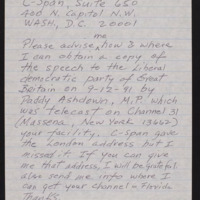 C-Span, Suite 650
400 N. Capitol N.W.
WASH, D.C. 20001
me
Please advise how & where
I can obtain a copy of
the speech to the Liberal
democratic party of Great
Britain on 9-12-91 by
Paddy Ashdown, M.P. which
was telecast on Channel 31
(Massena, New York 13662)
your facility. C-Span gave
the London address but I
missed it. If you can give
me that address, I will be grateful.
also send me info where I
can get your channel - Florida
Thanks